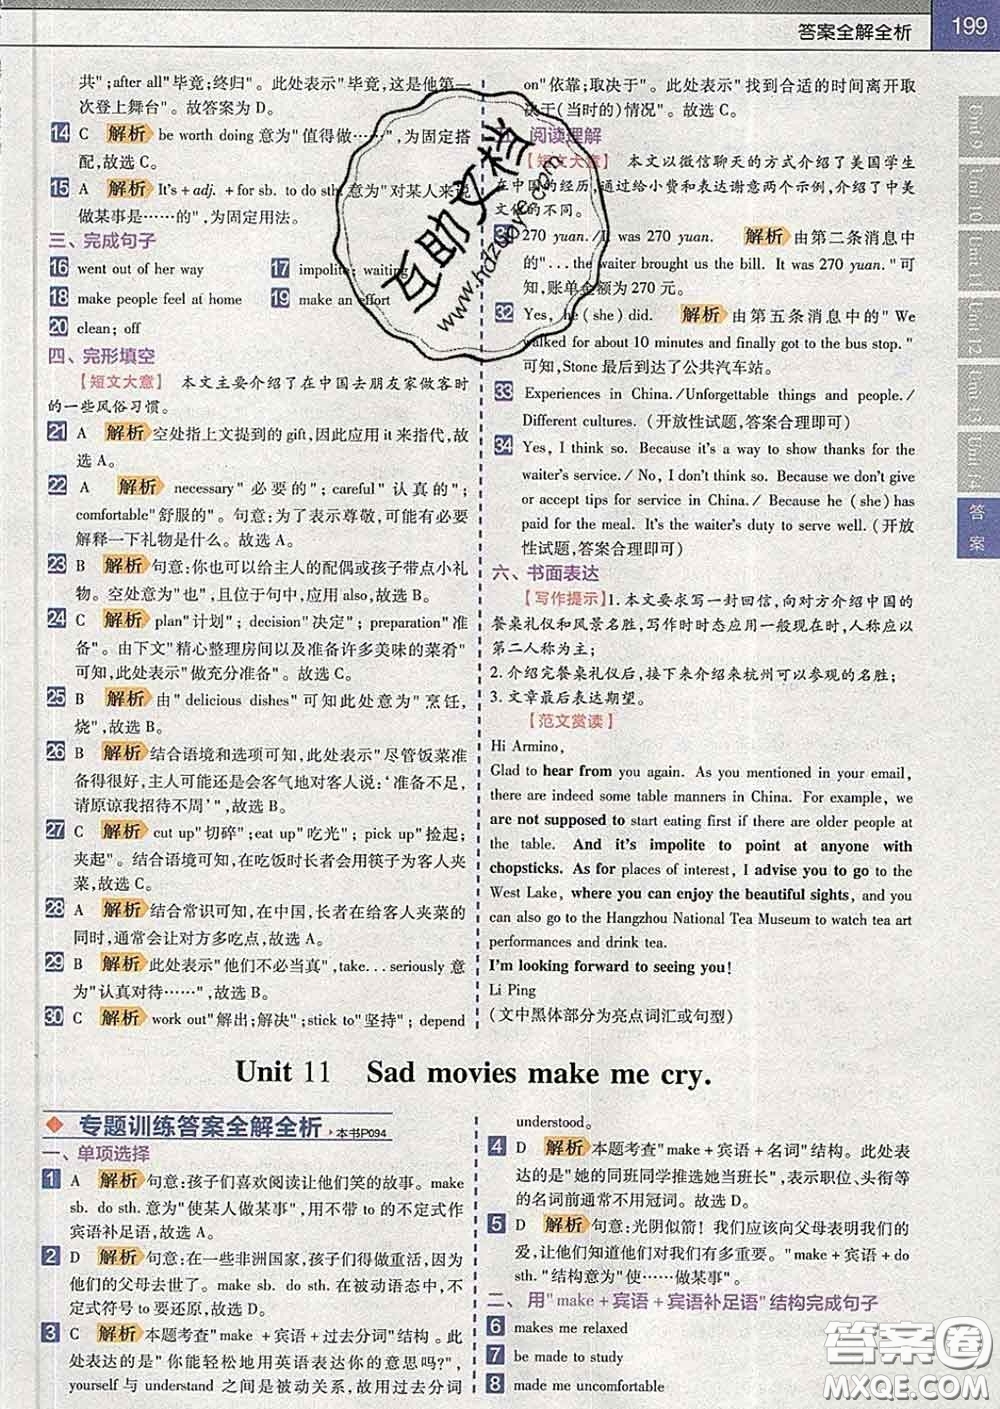 答案全解全析 199
共";after all"毕竟;终归"。此处表示"毕竟,这是他第一
次登上舞台"。故答案为 D。
14 C 解析 be worth doing 意为"值得做……",为固定搭
配,故选 C。
15 A 解析 It's + adj. + for sb. to do sth. 意为"对某人来说
做某事是……的",为固定用法。
三、完成句子
16 went out of her way 17 impolite; waiting
18 make people feel at home 19 make an effort
20 clean; off
四、完形填空
【短文大意】 本文主要介绍了在中国去朋友家做客时
的一些风俗习惯。
21 A 解析 空处指上文提到的 gift,因此应用 it 来指代,故
选 A。
22 A 解析 necessary"必要的"; careful"认真的";
comfortable"舒服的"。句意:为了表示尊敬,可能有必要
解释一下礼物是什么。故选 A。
23 B 解析 句意:你也可以给主人的配偶或孩子带点小礼
物。空处意为"也",且位于句中,应用 also,故选 B。
24 C 解析 plan"计划"; decision"决定"; preparation"准
备"。由下文"精心整理房间以及准备许多美味的菜肴"
可知,此处表示"做充分准备"。故选 C。
25 B 解析 由"delicious dishes"可知此处意为"烹饪,
烧",故选 B。
26 B 解析 结合语境和选项可知,此处表示"尽管饭菜准
备得很好,主人可能还是会客气地对客人说:'准备不足,
请原谅我招待不周'",故选 B。
27 C 解析 cut up"切碎";eat up"吃光"; pick up"捡起;
夹起"。结合语境可知,在吃饭时长者会用筷子为客人夹
菜,故选 C。
28 A 解析 结合常识可知,在中国,长者在给客人夹菜的
同时,通常会让对方多吃点,故选 A。
29 B 解析 此处表示"他们不必当真",take...seriously 意
为"认真对待……",故选 B。
30 C 解析 work out"解出;解决";stick to"坚持"; depend
on"依靠;取决于"。此处表示"找到合适的时间离开取
决于(当时的)情况"。故选 C。
阅读理解
【短文大意】 本文以微信聊天的方式介绍了美国学生
在中国的经历,通过给小费和表达谢意两个示例,介绍了中美
文化的不同。
270 yuan./It was 270 yuan. 解析 由第二条消息中
的"...the waiter brought us the bill. It was 270 yuan."可
知,账单金额为 270 元。
32 Yes, he (she) did. 解析 由第五条消息中的"We
walked for about 10 minutes and finally got to the bus stop."
可知,Stone 最后到达了公共汽车站。
33 Experiences in China./Unforgettable things and people./
Different cultures. (开放性试题,答案合理即可)
34 Yes, I think so. Because it's a way to show thanks for the
waiter's service./ No, I don't think so. Because we don't give
or accept tips for service in China./ Because he (she) has
paid for the meal. It's the waiter's duty to serve well. (开放
性试题,答案合理即可)
六、书面表达
【写作提示】1. 本文要求写一封回信,向对方介绍中国的
餐桌礼仪和风景名胜,写作时时态应用一般现在时,人称应以
第二人称为主;
2. 介绍完餐桌礼仪后,接下来介绍来杭州可以参观的名胜;
3. 文章最后表达期望。
【范文赏读】
Hi Armino,
Glad to hear from you again. As you mentioned in your email,
there are indeed some table manners in China. For example, we
are not supposed to start eating first if there are older people at
the table. And it's impolite to point at anyone with
chopsticks. As for places of interest, I advise you to go to the
West Lake, where you can enjoy the beautiful sights, and you
can also go to the Hangzhou National Tea Museum to watch tea art
performances and drink tea.
I'm looking forward to seeing you!
Li Ping
(文中黑体部分为亮点词汇或句型)
Unit 9
Unit 10
Unit 11
Unit 12
Unit 13
Unit 14
答案
互助文档
www.hdzuoye.com
Unit 11 Sad movies make me cry.
专题训练答案全解全析 本书P094
一、单项选择
1 A 解析 句意:孩子们喜欢阅读让他们笑的故事。make
sb. do sth. 意为"使某人做某事",用不带 to 的不定式作
宾语补足语,故选 A。
2 D 解析 句意:在一些非洲国家,孩子们得做重活,因为
他们的父母去世了。make sb. do sth. 在被动语态中,不
定式符号 to 要还原,故选 D。
3 C 解析 本题考查"make + 宾语 + 过去分词"结构。此
处表达的是"你能轻松地用英语表达你的意思吗?",
yourself 与 understand 之间是被动关系,故用过去分词
understood。
4 D 解析 本题考查"make + 宾语 + 名词"结构。此处表
达的是"她的同班同学推选她当班长",表示职位、头衔等
的名词前通常不用冠词。故选 D。
5 D 解析 句意:光阴似箭! 我们应该向父母表明我们的
爱,让他们知道他们对我们有多重要。"make + 宾语 + do
sth."结构意为"使……做某事"。
二、用"make + 宾语 + 宾语补足语"结构完成句子
6 makes me relaxed
7 be made to study
8 made me uncomfortable
答案圈
MXQE.COM